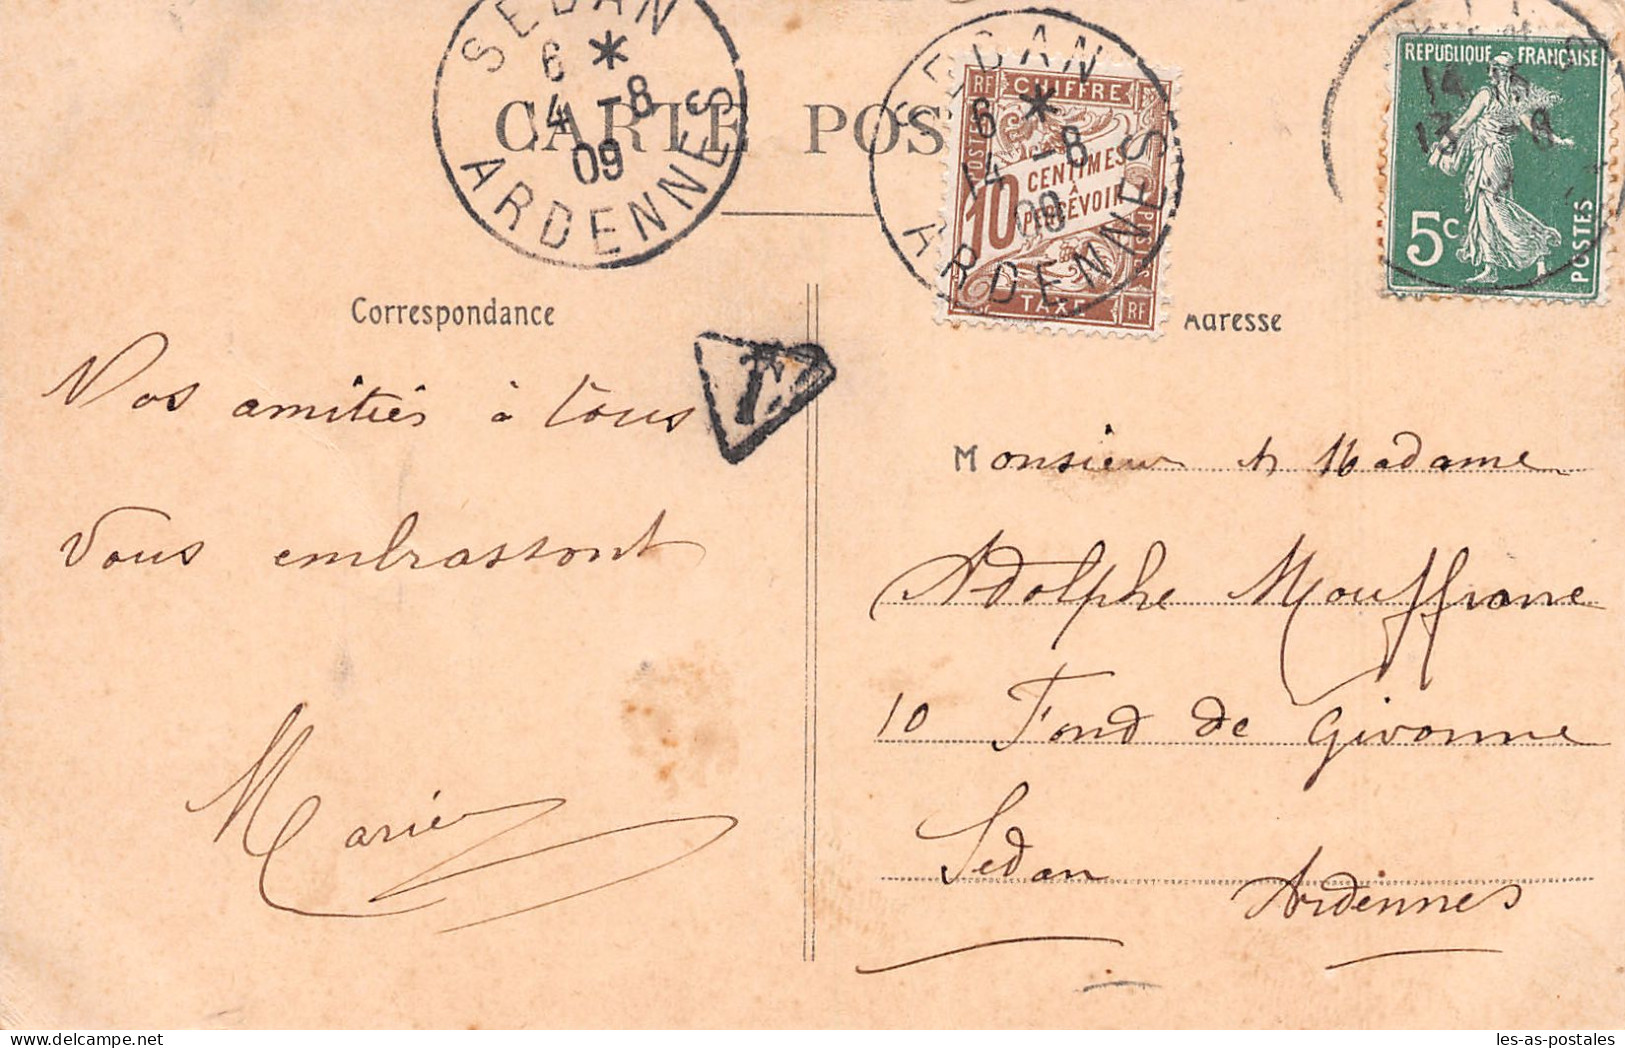 SEDAN
6 *
4 -8
09
ARDENNES
CARTE POS
SEDAN
6 *
14 -8
09
ARDENNES
RF CHIFFRE
POSTES
10 CENTIMES
À
PERCEVOIR
POSTES
TAXE RF
REPUBLIQUE FRANÇAISE
14 15
13 -8
5c
POSTES
Correspondance
Adresse
T
Nos amitiés à tous
Vous embrassont
Marie
Monsieur & Madame
Adolphe Mouffrone
10 Fond de Givonne
Sedan
Ardennes
les-as-postales